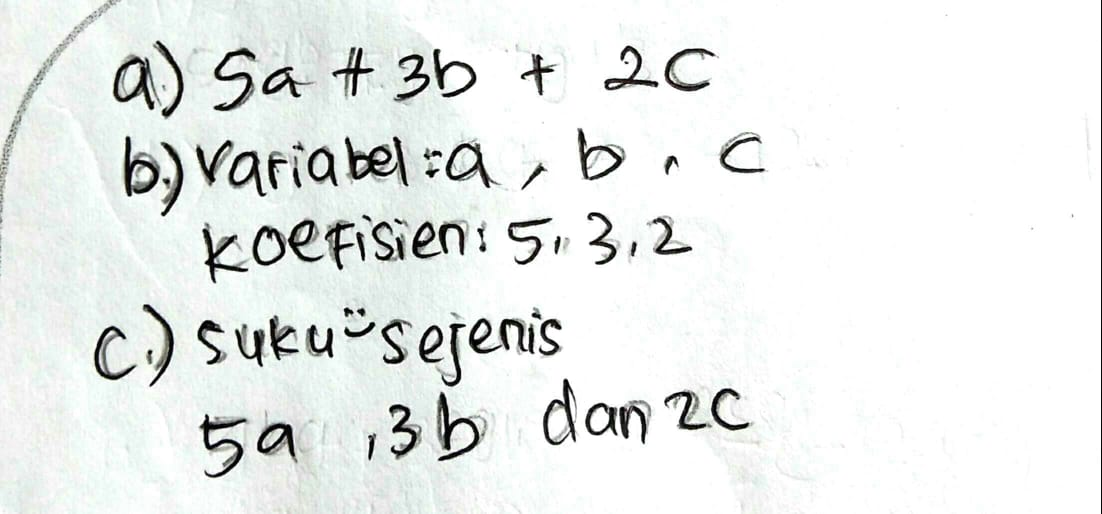 a) 5a + 3b + 2c
b.) Variabel : a, b, c
Koefisien : 5, 3, 2
c.) suku" sejenis
5a, 3b dan 2c